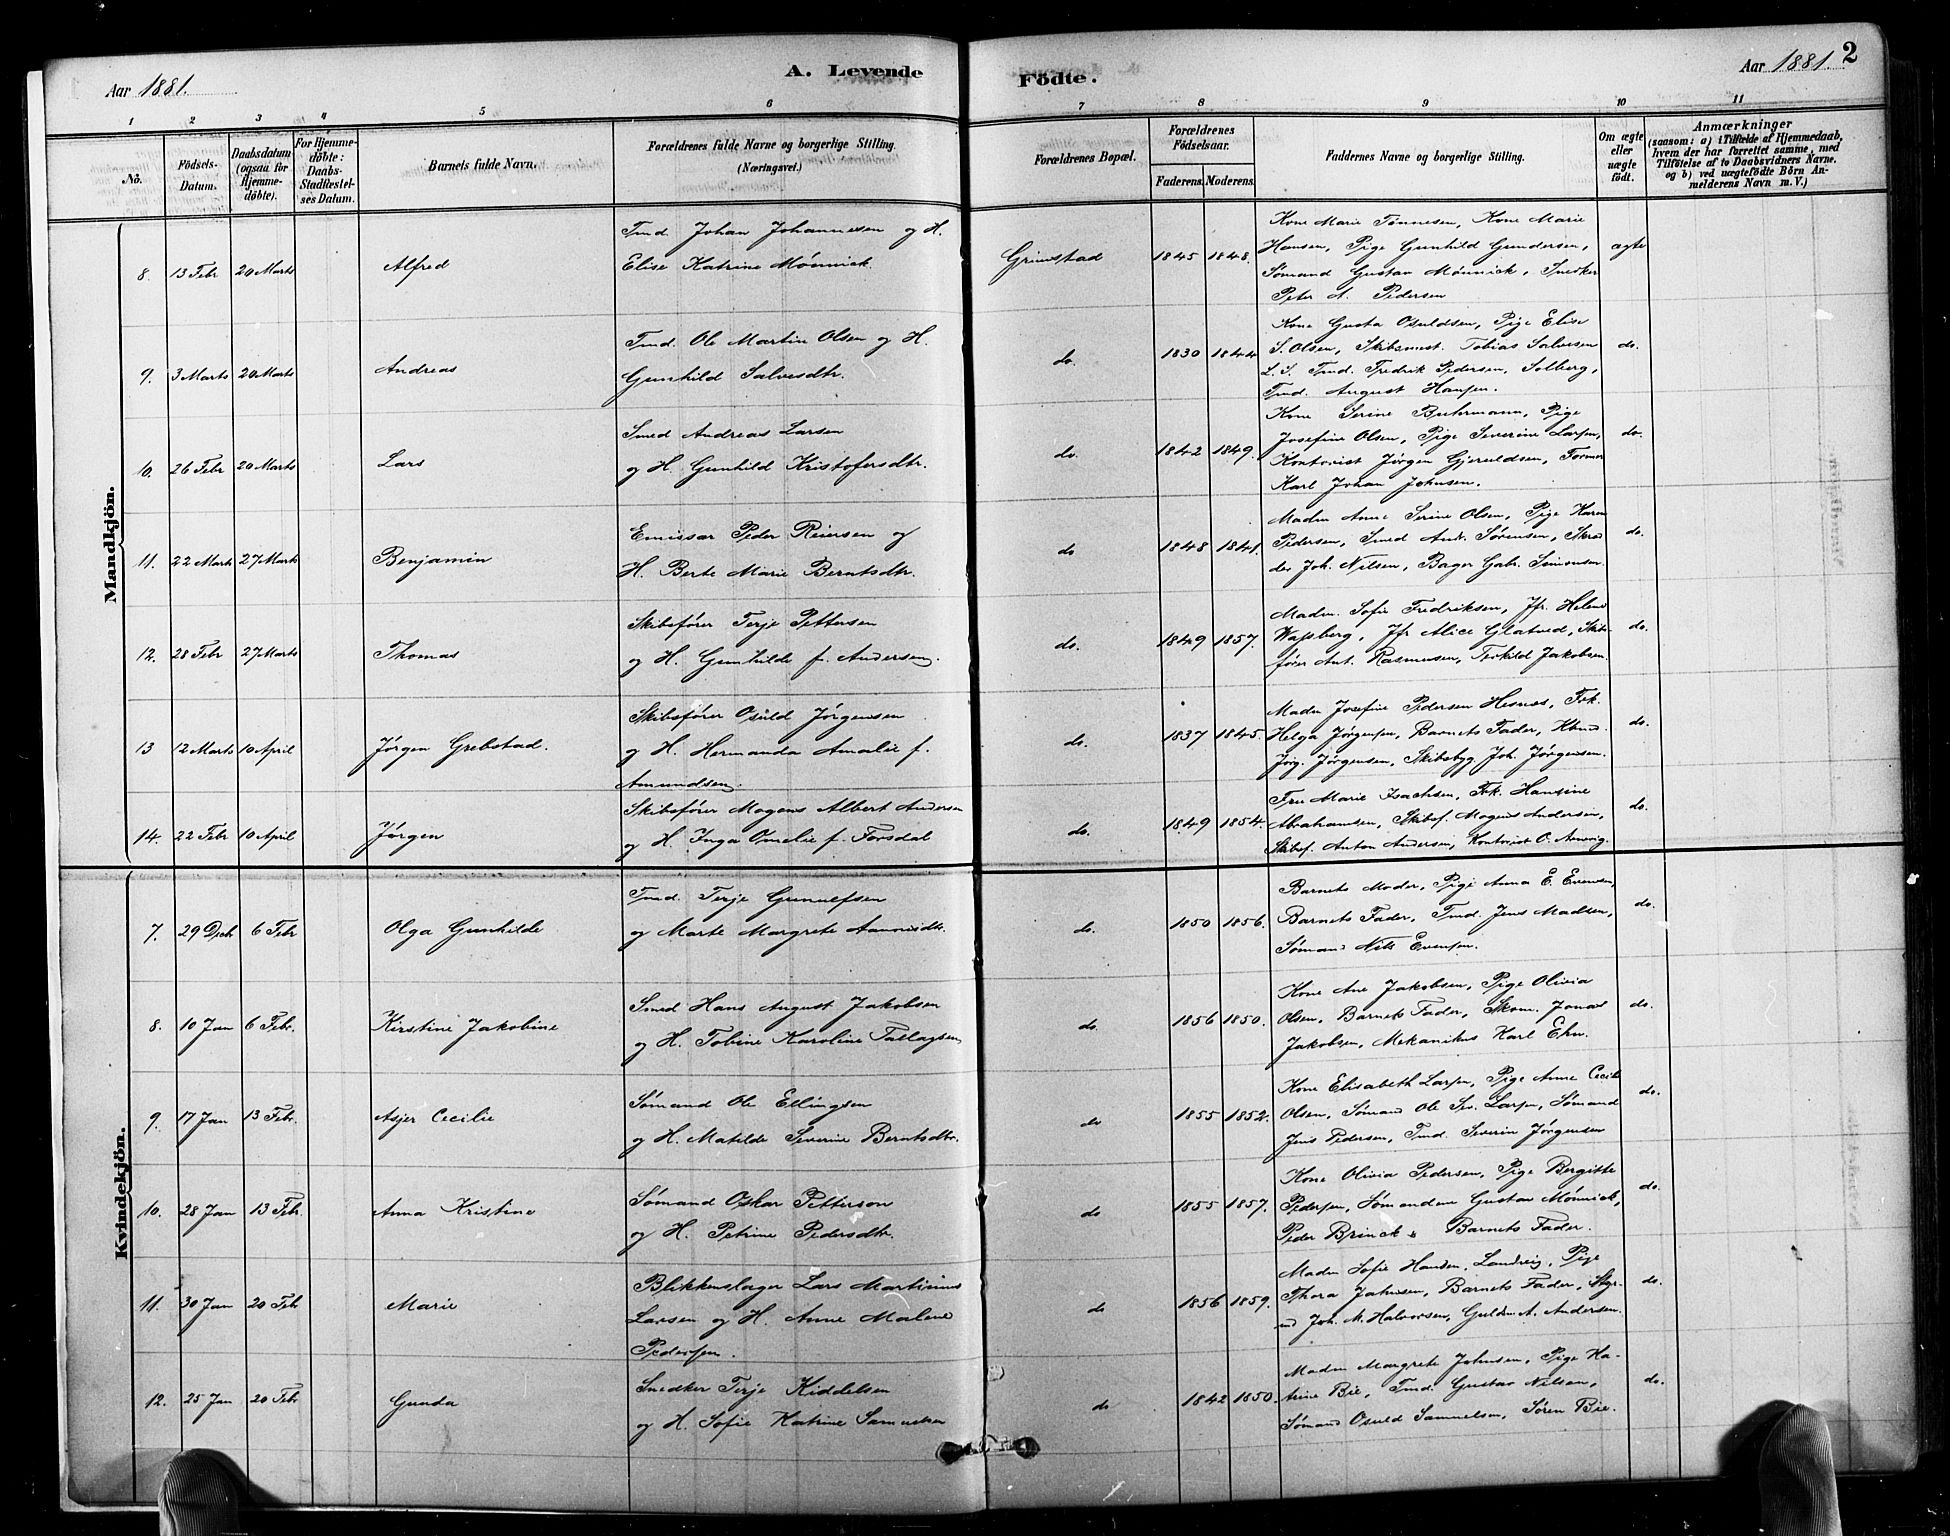 Aar 1881.
A. Levende
Födte.
Aar 1881.
2
1 2 3 4 5 6 7 8 9 10 11
No.
Födsels-Datum.
Daabsdatum (ogsaa for Hjemmedöbte).
For Hjemmedöbte: Daabs-Stadfæstelses Datum.
Barnets fulde Navn.
Forældrenes fulde Navne og borgerlige Stilling. (Næringsvei.)
Forældrenes Bopæl.
Forældrenes Födselsaar.
Faderens. Moderens.
Faddernes Navne og borgerlige Stilling.
Om ægte eller uægte födt.
Anmærkninger
(saasom: a) i Tilfælde af Hjemmedaab, hvem der har forrettet samme, med Tilföielse af to Daabsvidners Navne. og b) ved uægtefödte Börn Anmelderens Navn m. V.)
Mandkjön.
8. 13 Febr 20 Marts Alfred
Tmd. Johan Johannessen og H.
Elise Katrine Mønnick.
Grimstad 1845 1848.
Kone Marie Tønnesen, Kone Marie
Hansen, Pige Gunhild Gundersen,
Sømand Gustav Mønnick, Snedker
Peter A. Pedersen
ægte
9. 3 Marts 20 Marts Andreas
Tmd. Ole Martin Olsen og H.
Gunhild Salvesdtr.
do. 1830 1844
Kone Gusta Osuldsen, Pige Elise
S. Olsen, Skibsmest. Tobias Salvesen
L. S. Tmd. Fredrik Pedersen, Solberg,
Tmd. August Hansen.
do.
10. 26 Febr 20 Marts Lars
Smed Andreas Larsen
og H. Gunhild Kristofersdtr.
do. 1842 1849.
Kone Serine Buhrmann, Pige
Josefine Olsen, Pige Severine Larsen,
Kontorist Jørgen Gjeruldsen, Former
Karl Johan Johnsen.
do.
11. 22 Marts 27 Marts Benjamin
Emissær Peder Reiersen og
H. Berte Marie Berntsdtr.
do 1848 1841.
Madm Anne Serine Olsen, Pige Karen
Pedersen, Smed And. Sørensen, Skræd
der Joh. Nilsen, Bager Gabr. Simonsen
do.
12. 28 Febr 27 Marts Thomas
Skibsfører Terje Pettersen
og H. Gunhilde f. Andersen.
do. 1849 1857.
Madm. Sofie Fredriksen, Jfr. Helene
Wassberg, Jfr Alice Glatved, Skibs-
fører Ant. Rasmussen, Terkild Jakobsen.
do.
13 12 Marts 10 April Jørgen Grebstad.
Skibsfører Osuld Jørgensen
og H. Hermanda Amalie f.
Amundsen.
do. 1837 1845.
Madm Josefine Pedersen Hesnæs, Frk.
Helga Jørgensen, Barnets Fader, Kbmd.
Jørg. Jørgensen, Skibsbyg Joh. Jørgensen.
do.
14. 22 Febr 10 April Jørgen
Skibsfører Mogens Albert Andersen
og H. Inga Omelie f. Forsdal
do. 1849 1854.
Fru Marie Isachsen, Frk. Hansine
Abrahamsen, Skibsf. Mogens Andersen,
Skibsf. Anton Andersen, Kontorist O. Arnevig.
do.
Kvindekjön.
7. 29 Dcb 6 Febr Olga Gunhilde
Tmd. Terje Gunulfsen
og Marte Margrete Aanonsdtr.
do. 1850 1856.
Barnets Moder, Pige Anna E. Evensen,
Barnets Fader, Tmd. Jens Madsen,
Sømand Nils Evensen.
do.
8. 10 Jan 6 Febr. Kirstine Jakobine
Smed Hans August Jakobsen
og H. Tobine Karoline Tallagsen
do. 1856 1850.
Kone Ane Jakobsen, Pige Olivia
Olsen, Barnets Fader, Skom. Jonas
Jakobsen, Mekanikus Karl Ehn.
do.
9. 17 Jan 13 Febr. Asjer Cecilie
Sømand Ole Ellingsen
og H. Matilde Severine Berntsdtr.
do 1855 1852.
Kone Elisabeth Larsen, Pige Anne Cecilie
Olsen, Sømand Ole Sev. Larsen, Sømand
Jens Pedersen, Tmd. Severin Jørgensen
do.
10. 28 Jan 13 Febr. Anna Kristine
Sømand Oskar Petterson
og H. Petrine Pedersdtr.
do 1855 1857.
Kone Olivia Pedersen, Pige Bergitte
Pedersen, Sømændene Gustav Mønnick,
Peder Brinck & Barnets Fader.
do.
11. 30 Jan 20 Feb Marie
Blikkenslager Lars Martinius
Larsen og H. Anne Malene
Pedersen.
do 1856 1859.
Madm Sofie Hansen, Landvig, Pige
Thora Johnsen, Barnets Fader, Styr-
md Joh. M. Halvorsen, Guldm A. Andersen.
do.
12. 25 Jan 20 Febr Gunda
Snedker Terje Kiddelsen
og H. Sofie Katrine Samuelsen
do 1842 1850.
Madm Margrete Johnsen, Pige Ka-
trine Bie, Tmd. Gustav Nilsen,
Sømand Osuld Samuelsen, Søren Bie.
do.